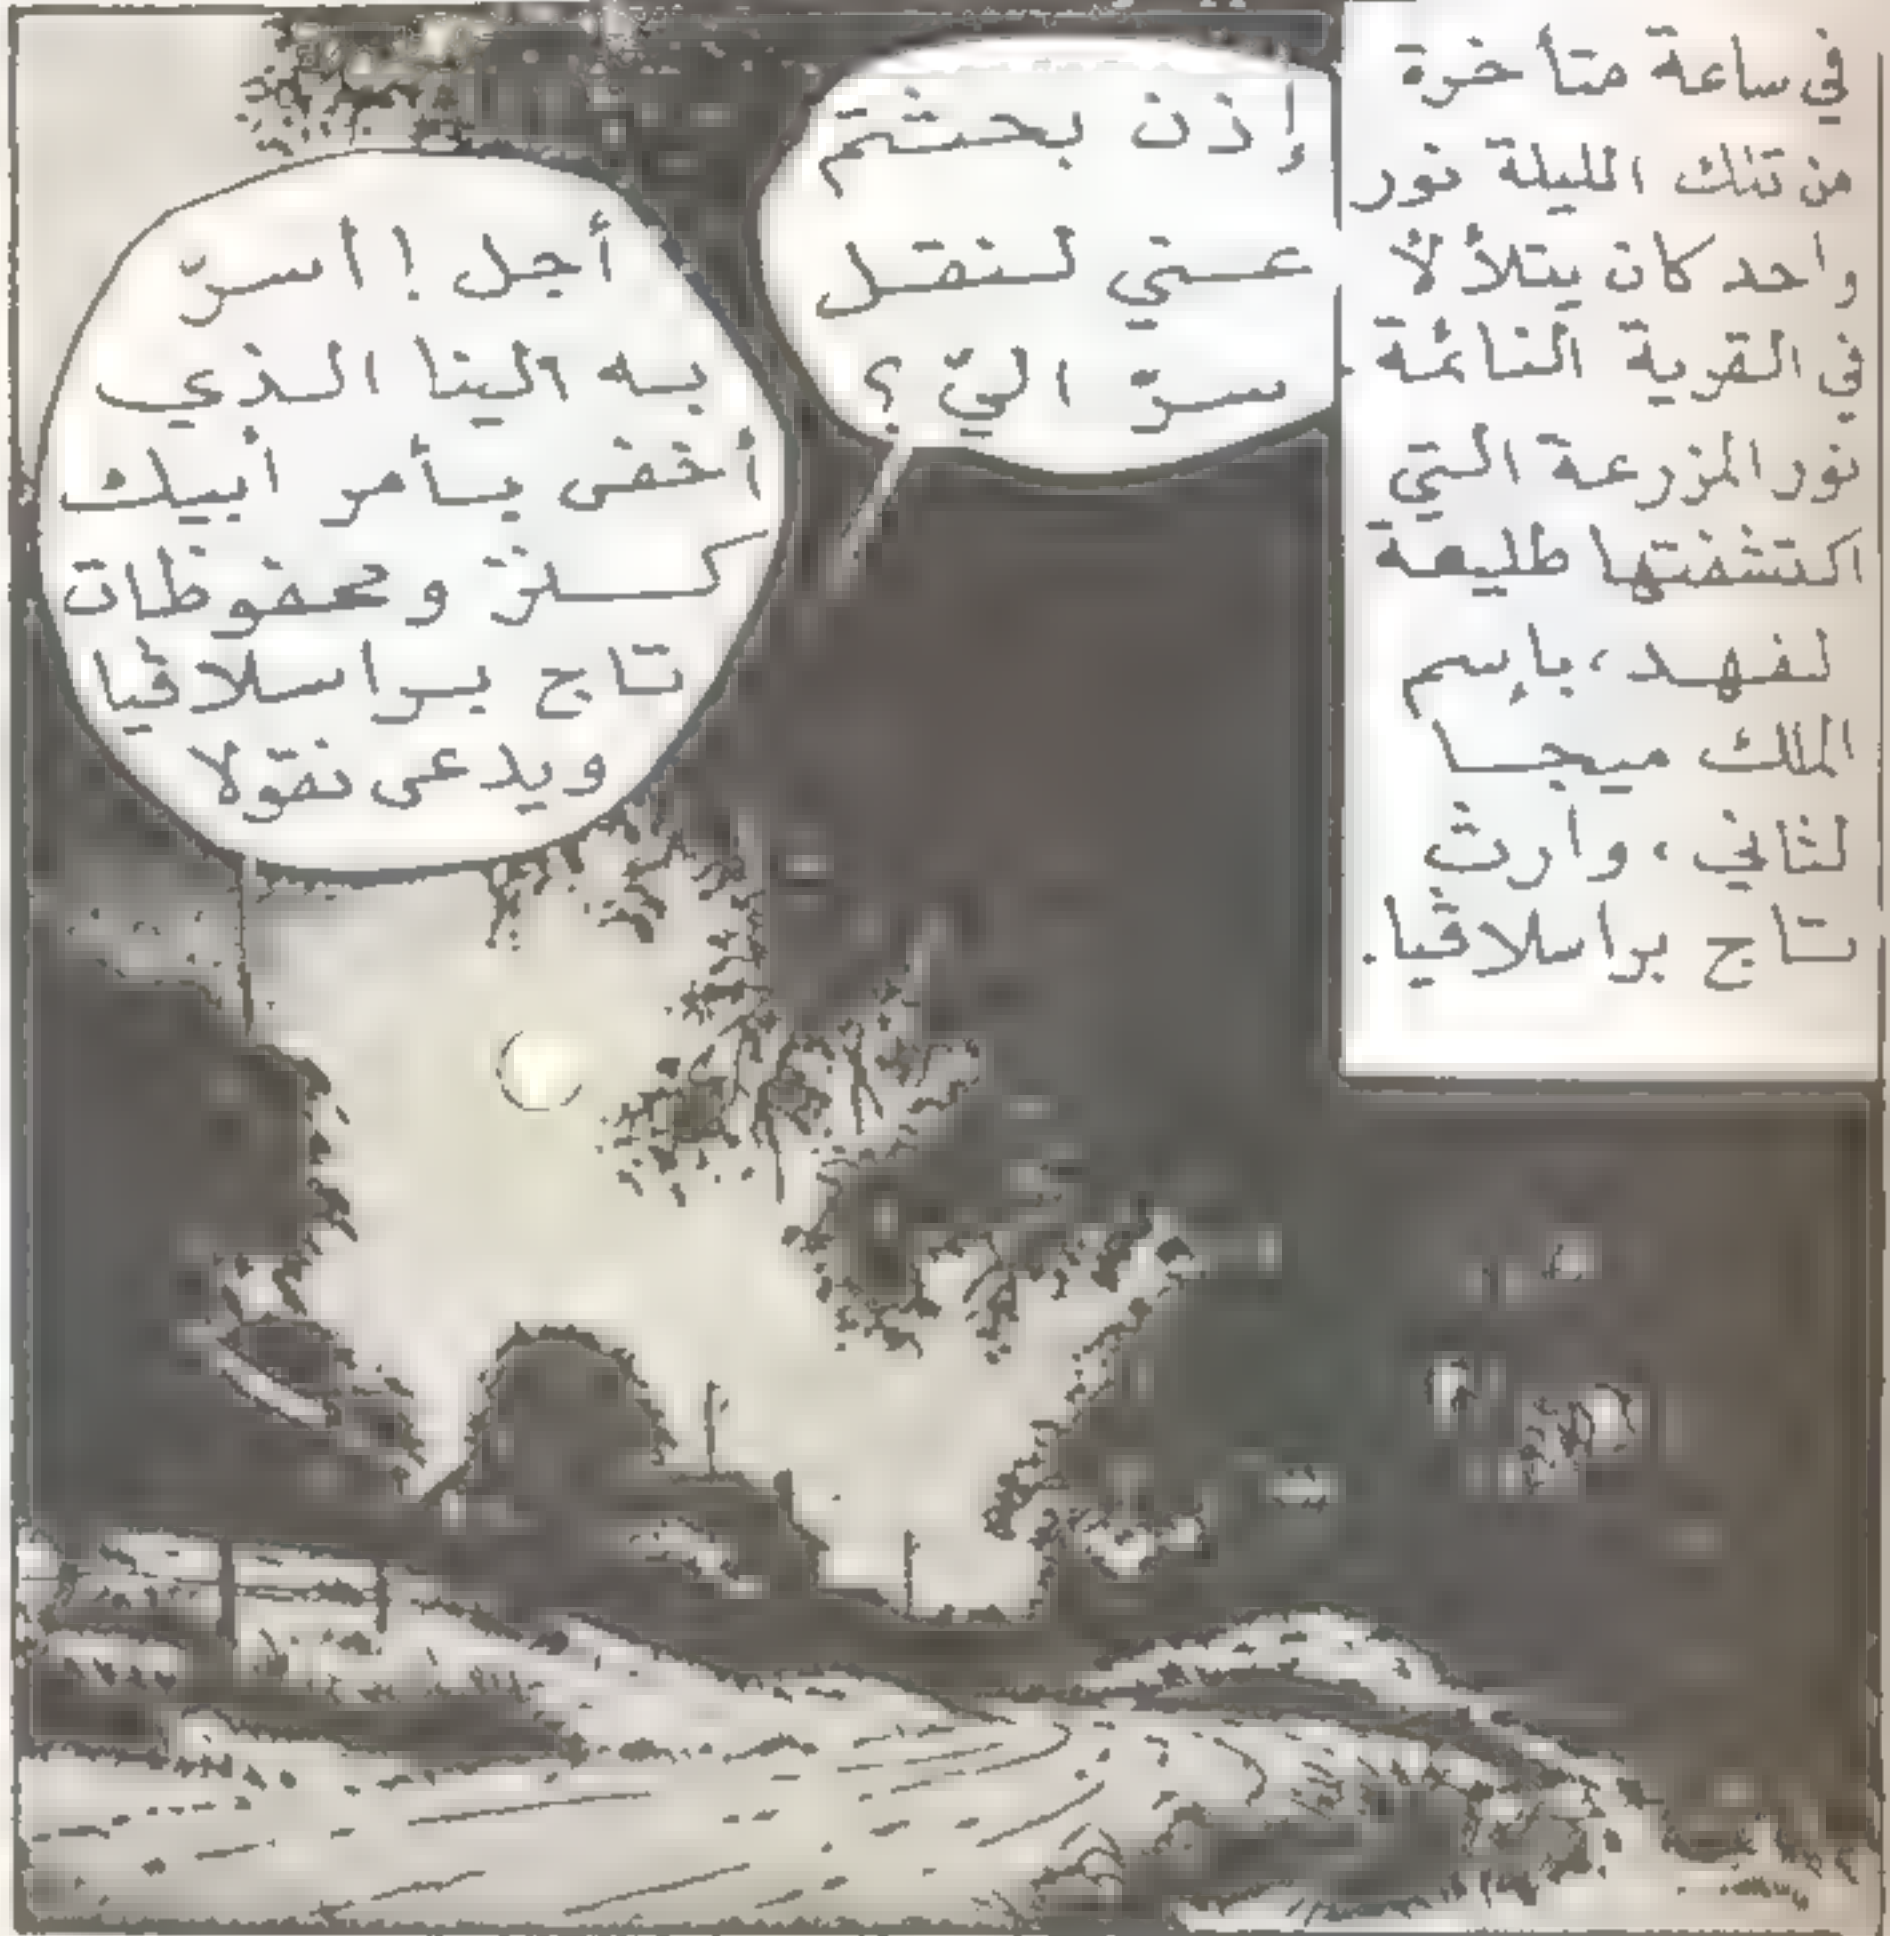 في ساعة متأخرة
من تلك الليلة نور
واحد كان يتلألأ
في القرية النائمة.
نور المزرعة التي
اكتشفتها طليعة
لفهد، بإسم
الملك ميجا
لثاني، وارث
تاج براسلاڤيا.
إذن بحثتم
عني لنقل
سرّ اليّ ؟
أجل ! أسرّ
به الينا الذي
أخفى بأمر أبيك
كنز ومحفوظات
تاج براسلاڤيا
ويدعى نقولا